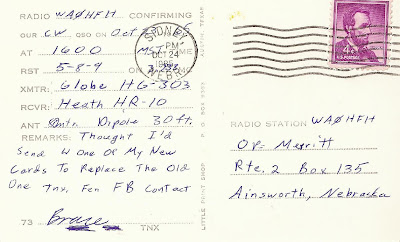 RADIO WAØHFH CONFIRMING
OUR CW QSO ON Oct
AT 1600 MST
RST 5-8-9
XMTR: Globe HG-303
RCVR: Heath HR-10
ANT Dipole 30 ft.
REMARKS: Thought I'd
Send U One Of My New
Cards To Replace The Old
One Tnx, Fer FB Contact
73 Bruce TNX
SIDNEY
PM
OCT 24
NEBR
LITTLE PRINT SHOP P. O. BOX AUSTIN, TEXAS
4¢
U.S. POSTAGE
RADIO STATION WAØHFH
OP- Merritt
Rte. 2 Box 135
Ainsworth, Nebraska